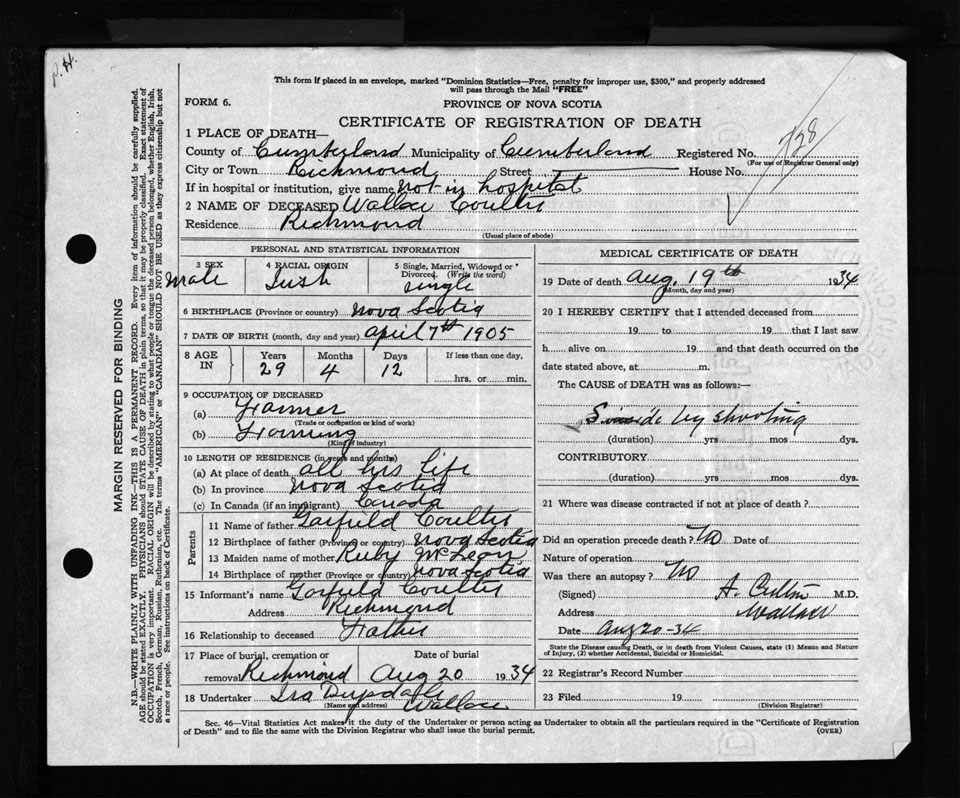 P. H.
This form if placed in an envelope, marked "Dominion Statistics—Free, penalty for improper use, $300," and properly addressed
will pass through the Mail "FREE"
FORM 6.
PROVINCE OF NOVA SCOTIA
CERTIFICATE OF REGISTRATION OF DEATH
1 PLACE OF DEATH—
County of Cumberland Municipality of Cumberland Registered No. 738
(For use of Registrar General only)
City or Town Richmond Street House No.
If in hospital or institution, give name not in hospital
2 NAME OF DECEASED Wallace Coulter
Residence Richmond
(Usual place of abode)
PERSONAL AND STATISTICAL INFORMATION
3 SEX
Male
4 RACIAL ORIGIN
Irish
5 Single, Married, Widowed or
Divorced. (Write the word)
single
6 BIRTHPLACE (Province or country) Nova Scotia
7 DATE OF BIRTH (month, day and year) April 7th 1905
8 AGE IN
Years Months Days If less than one day,
29 4 12 hrs. or min.
9 OCCUPATION OF DECEASED
(a) Farmer
(Trade or occupation or kind of work)
(b) Farming
(Kind of industry)
10 LENGTH OF RESIDENCE (in years and months)
(a) At place of death all his life
(b) In province Nova Scotia
(c) In Canada (if an immigrant) Canada
Parents
11 Name of father Garfield Coulter
12 Birthplace of father (Province or country) Nova Scotia
13 Maiden name of mother Ruby McLean
14 Birthplace of mother (Province or country) Nova Scotia
15 Informant's name Garfield Coulter
Address Richmond
16 Relationship to deceased Father
17 Place of burial, cremation or Date of burial
removal Richmond Aug 20 1934
18 Undertaker Ira Drysdale
(Name and address) Wallace
MEDICAL CERTIFICATE OF DEATH
19 Date of death Aug. 19th 1934
(Month, day and year)
20 I HEREBY CERTIFY that I attended deceased from
19 to 19 that I last saw
h alive on 19 and that death occurred on the
date stated above, at m.
The CAUSE of DEATH was as follows:—
Suicide by shooting
(duration) yrs mos dys.
CONTRIBUTORY
(duration) yrs. mos. dys.
21 Where was disease contracted if not at place of death?
Did an operation precede death? No Date of
Nature of operation
Was there an autopsy? No
(Signed) A. M.D.
Address Wallace
Date Aug 20-34
State the Disease causing Death, or in death from Violent Causes, state (1) Means and Nature
of Injury, (2) whether Accidental, Suicidal or Homicidal.
22 Registrar's Record Number
23 Filed 19
(Division Registrar)
Sec. 46—Vital Statistics Act makes it the duty of the Undertaker or person acting as Undertaker to obtain all the particulars required in the "Certificate of Registration
of Death" and to file the same with the Division Registrar who shall issue the burial permit. (OVER)
MARGIN RESERVED FOR BINDING
N.B.—WRITE PLAINLY WITH UNFADING INK—THIS IS A PERMANENT RECORD. Every item of information should be carefully supplied.
AGE should be stated EXACTLY. PHYSICIANS should STATE CAUSE OF DEATH in plain terms, so that it may be properly classified. Exact statement of
OCCUPATION is very important. RACIAL ORIGIN will be described by stating to what people or tongue the deceased person belonged, whether English, Irish,
Scotch, French, German, Russian, Ruthenian, etc. The terms "AMERICAN" or "CANADIAN" SHOULD NOT BE USED as they express citizenship but not
a race or people. See instructions on back of Certificate.